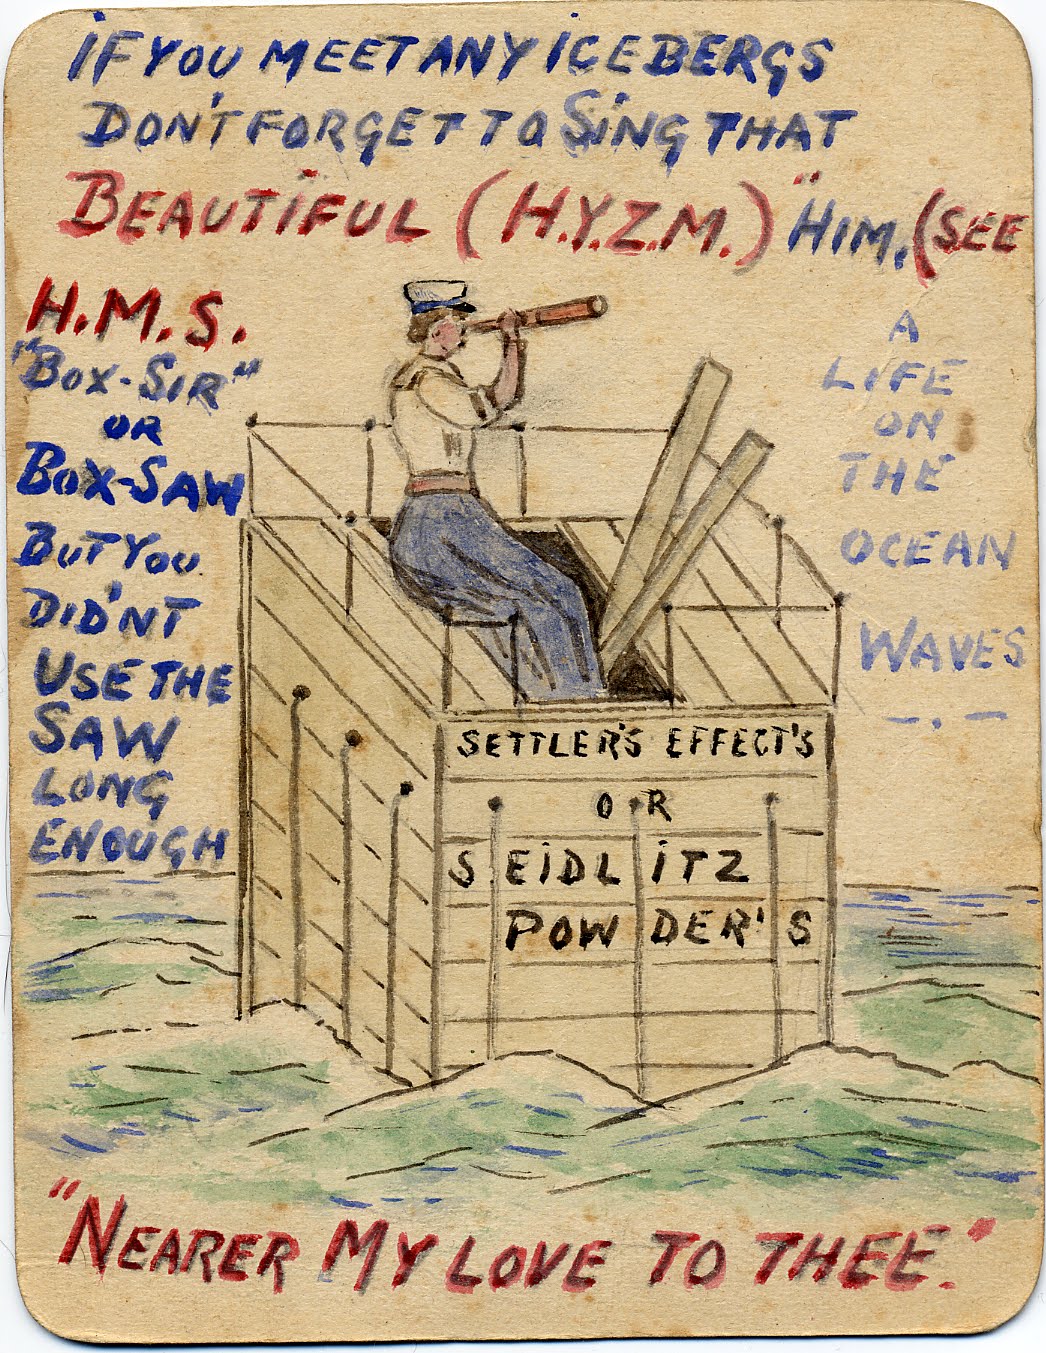 iF YOU MEET ANY iCEBERGS
DON'T FORGET TO SiNG THAT
BEAUTiFUL (H.Y.Z.M.) "HiM. (SEE
H.M.S.
"BOX-SiR"
OR
BOX-SAW
BUT YOU
DID'NT
USE THE
SAW
LONG
ENOUGH
A
LiFE
ON
THE
OCEAN
WAVES
SETTLER'S EFFECT'S
OR
SEiDLiTZ
POWDER'S
"NEARER MY LOVE TO THEE."